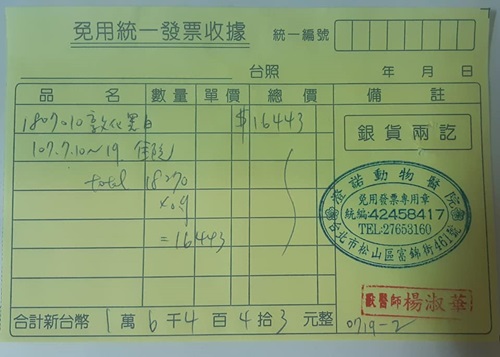 免用統一發票收據 統一編號
台照 年 月 日
品名 數量 單價 總價 備註
1807010 敦化黑白 $16443
銀貨兩訖
107.7.10~19 住院
total 18270
x0.9
=16443
澄諾動物醫院
免用發票專用章
統編:42458417
TEL:27653160
台北市松山區富錦街461號
獸醫師 楊淑華
合計新台幣 1萬6千4百4拾3元整
0719-2